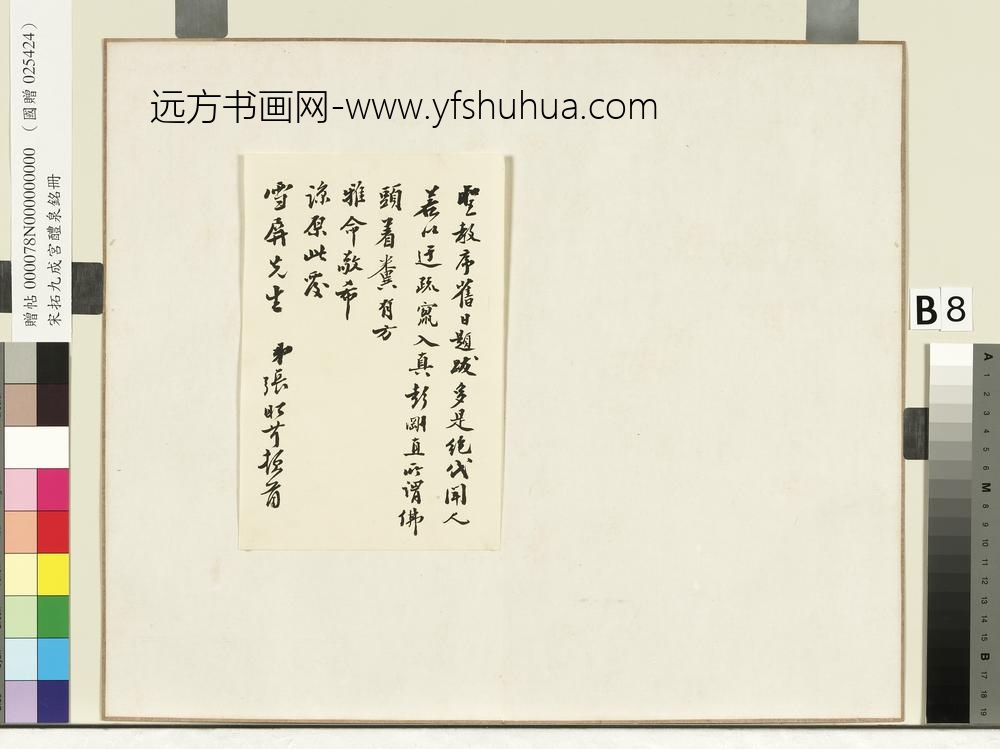 远方书画网-www.yfshuhua.com
聖教序舊日題跋多是絕代聞人
若以迂疏竄入真彭剛直所謂佛
頭着糞有方
雅命敬希
諒原此啓
雪屏先生 弟張昭芹頓首
贈帖 000078N000000000 (國贈 025424)
宋拓九成宮醴泉銘冊
B 8
A 1 2 3 4 5 6 M 8 9 10 11 12 13 14 15 B 17 18 19